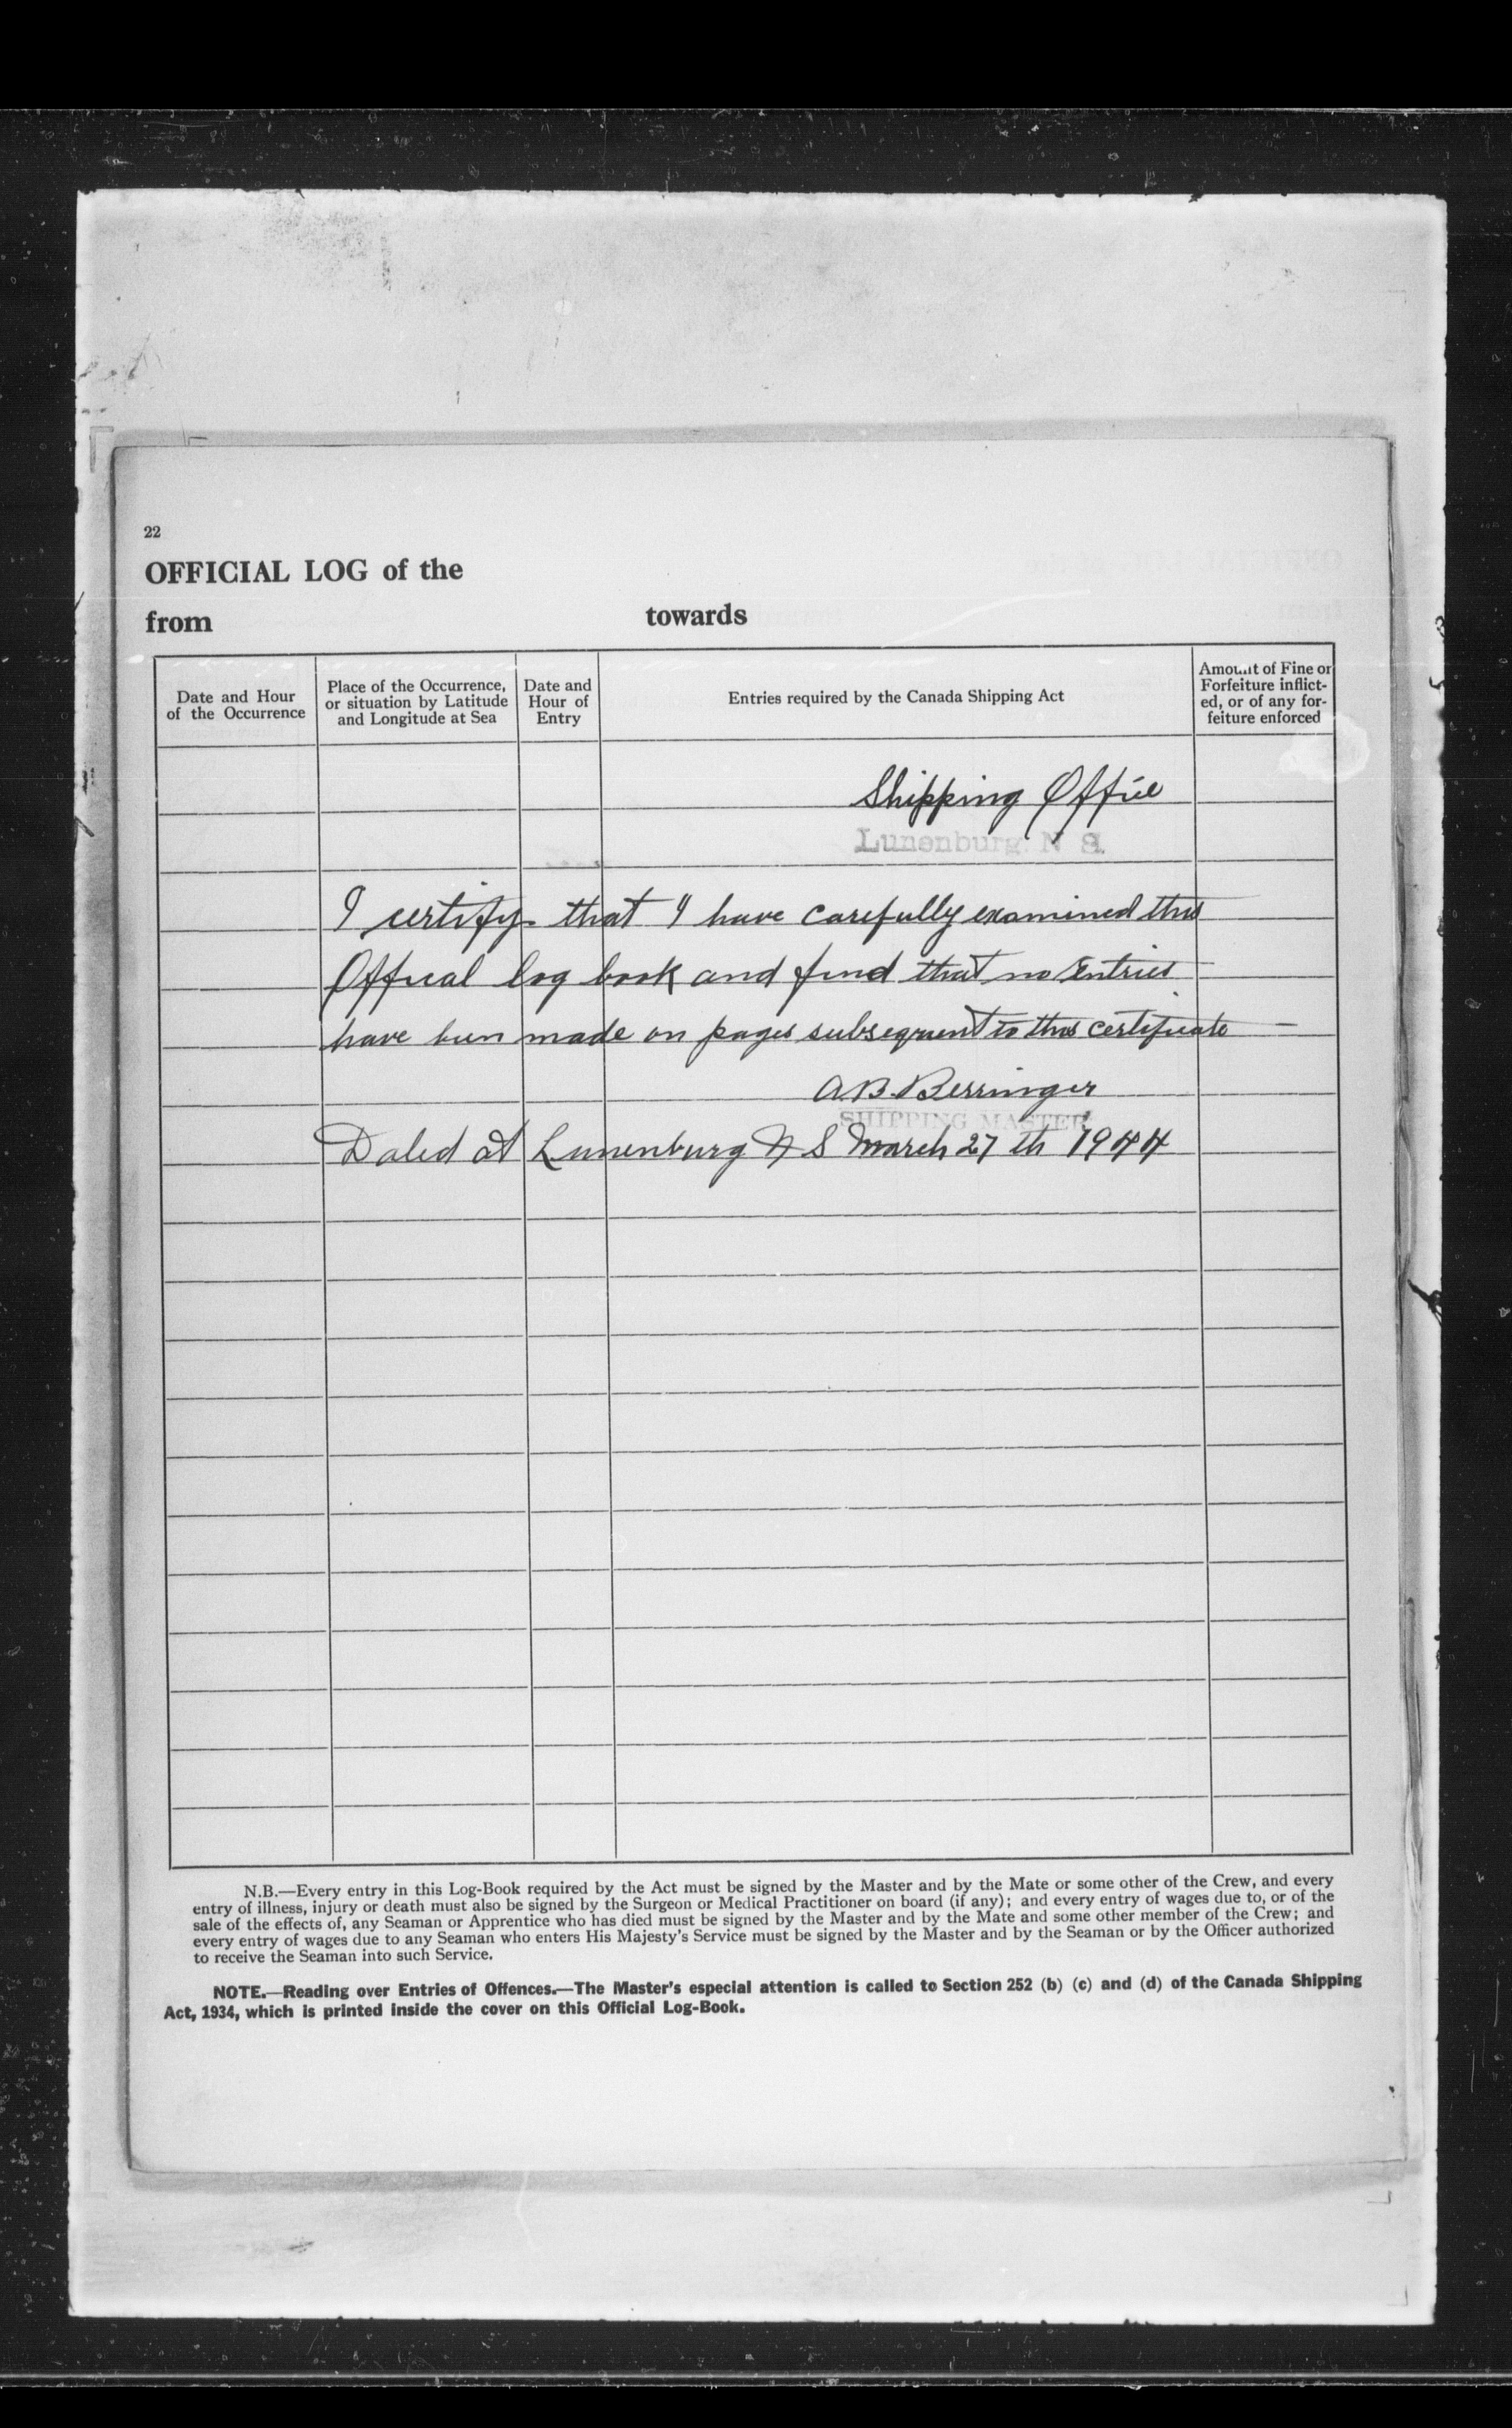 22
OFFICIAL LOG of the
from towards
Date and Hour of the Occurrence
Place of the Occurrence, or situation by Latitude and Longitude at Sea
Date and Hour of Entry
Entries required by the Canada Shipping Act
Amount of Fine or Forfeiture inflict-ed, or of any for-feiture enforced
Shipping Office
Lunenburg. N S.
I certify that I have carefully examined this
Offical log book and find that no Entries
have been made on pages subsequent to this certificate
A.B. Berringer
SHIPPING MASTER
Dated at Lunenburg N S March 27 th 1944
N.B.—Every entry in this Log-Book required by the Act must be signed by the Master and by the Mate or some other of the Crew, and every
entry of illness, injury or death must also be signed by the Surgeon or Medical Practitioner on board (if any); and every entry of wages due to, or of the
sale of the effects of, any Seaman or Apprentice who has died must be signed by the Master and by the Mate and some other member of the Crew; and
every entry of wages due to any Seaman who enters His Majesty's Service must be signed by the Master and by the Seaman or by the Officer authorized
to receive the Seaman into such Service.
NOTE.—Reading over Entries of Offences.—The Master's especial attention is called to Section 252 (b) (c) and (d) of the Canada Shipping
Act, 1934, which is printed inside the cover on this Official Log-Book.